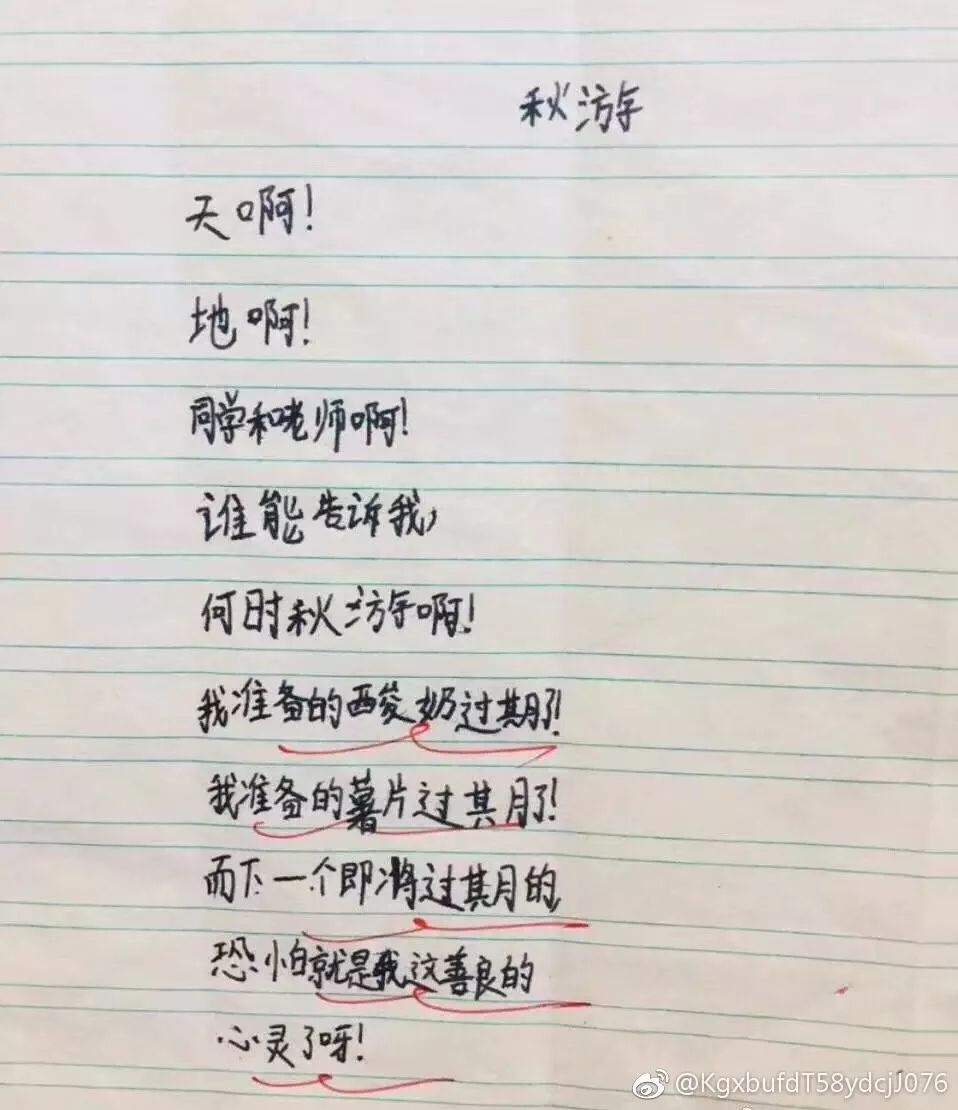 秋游
天啊!
地啊!
同学和老师啊!
谁能告诉我,
何时秋游啊!
我准备的酸奶过期了!
我准备的薯片过期了!
而下一个即将过期的,
恐怕就是我这善良的
心灵了呀!
@KgxbufdT58ydcjJ076